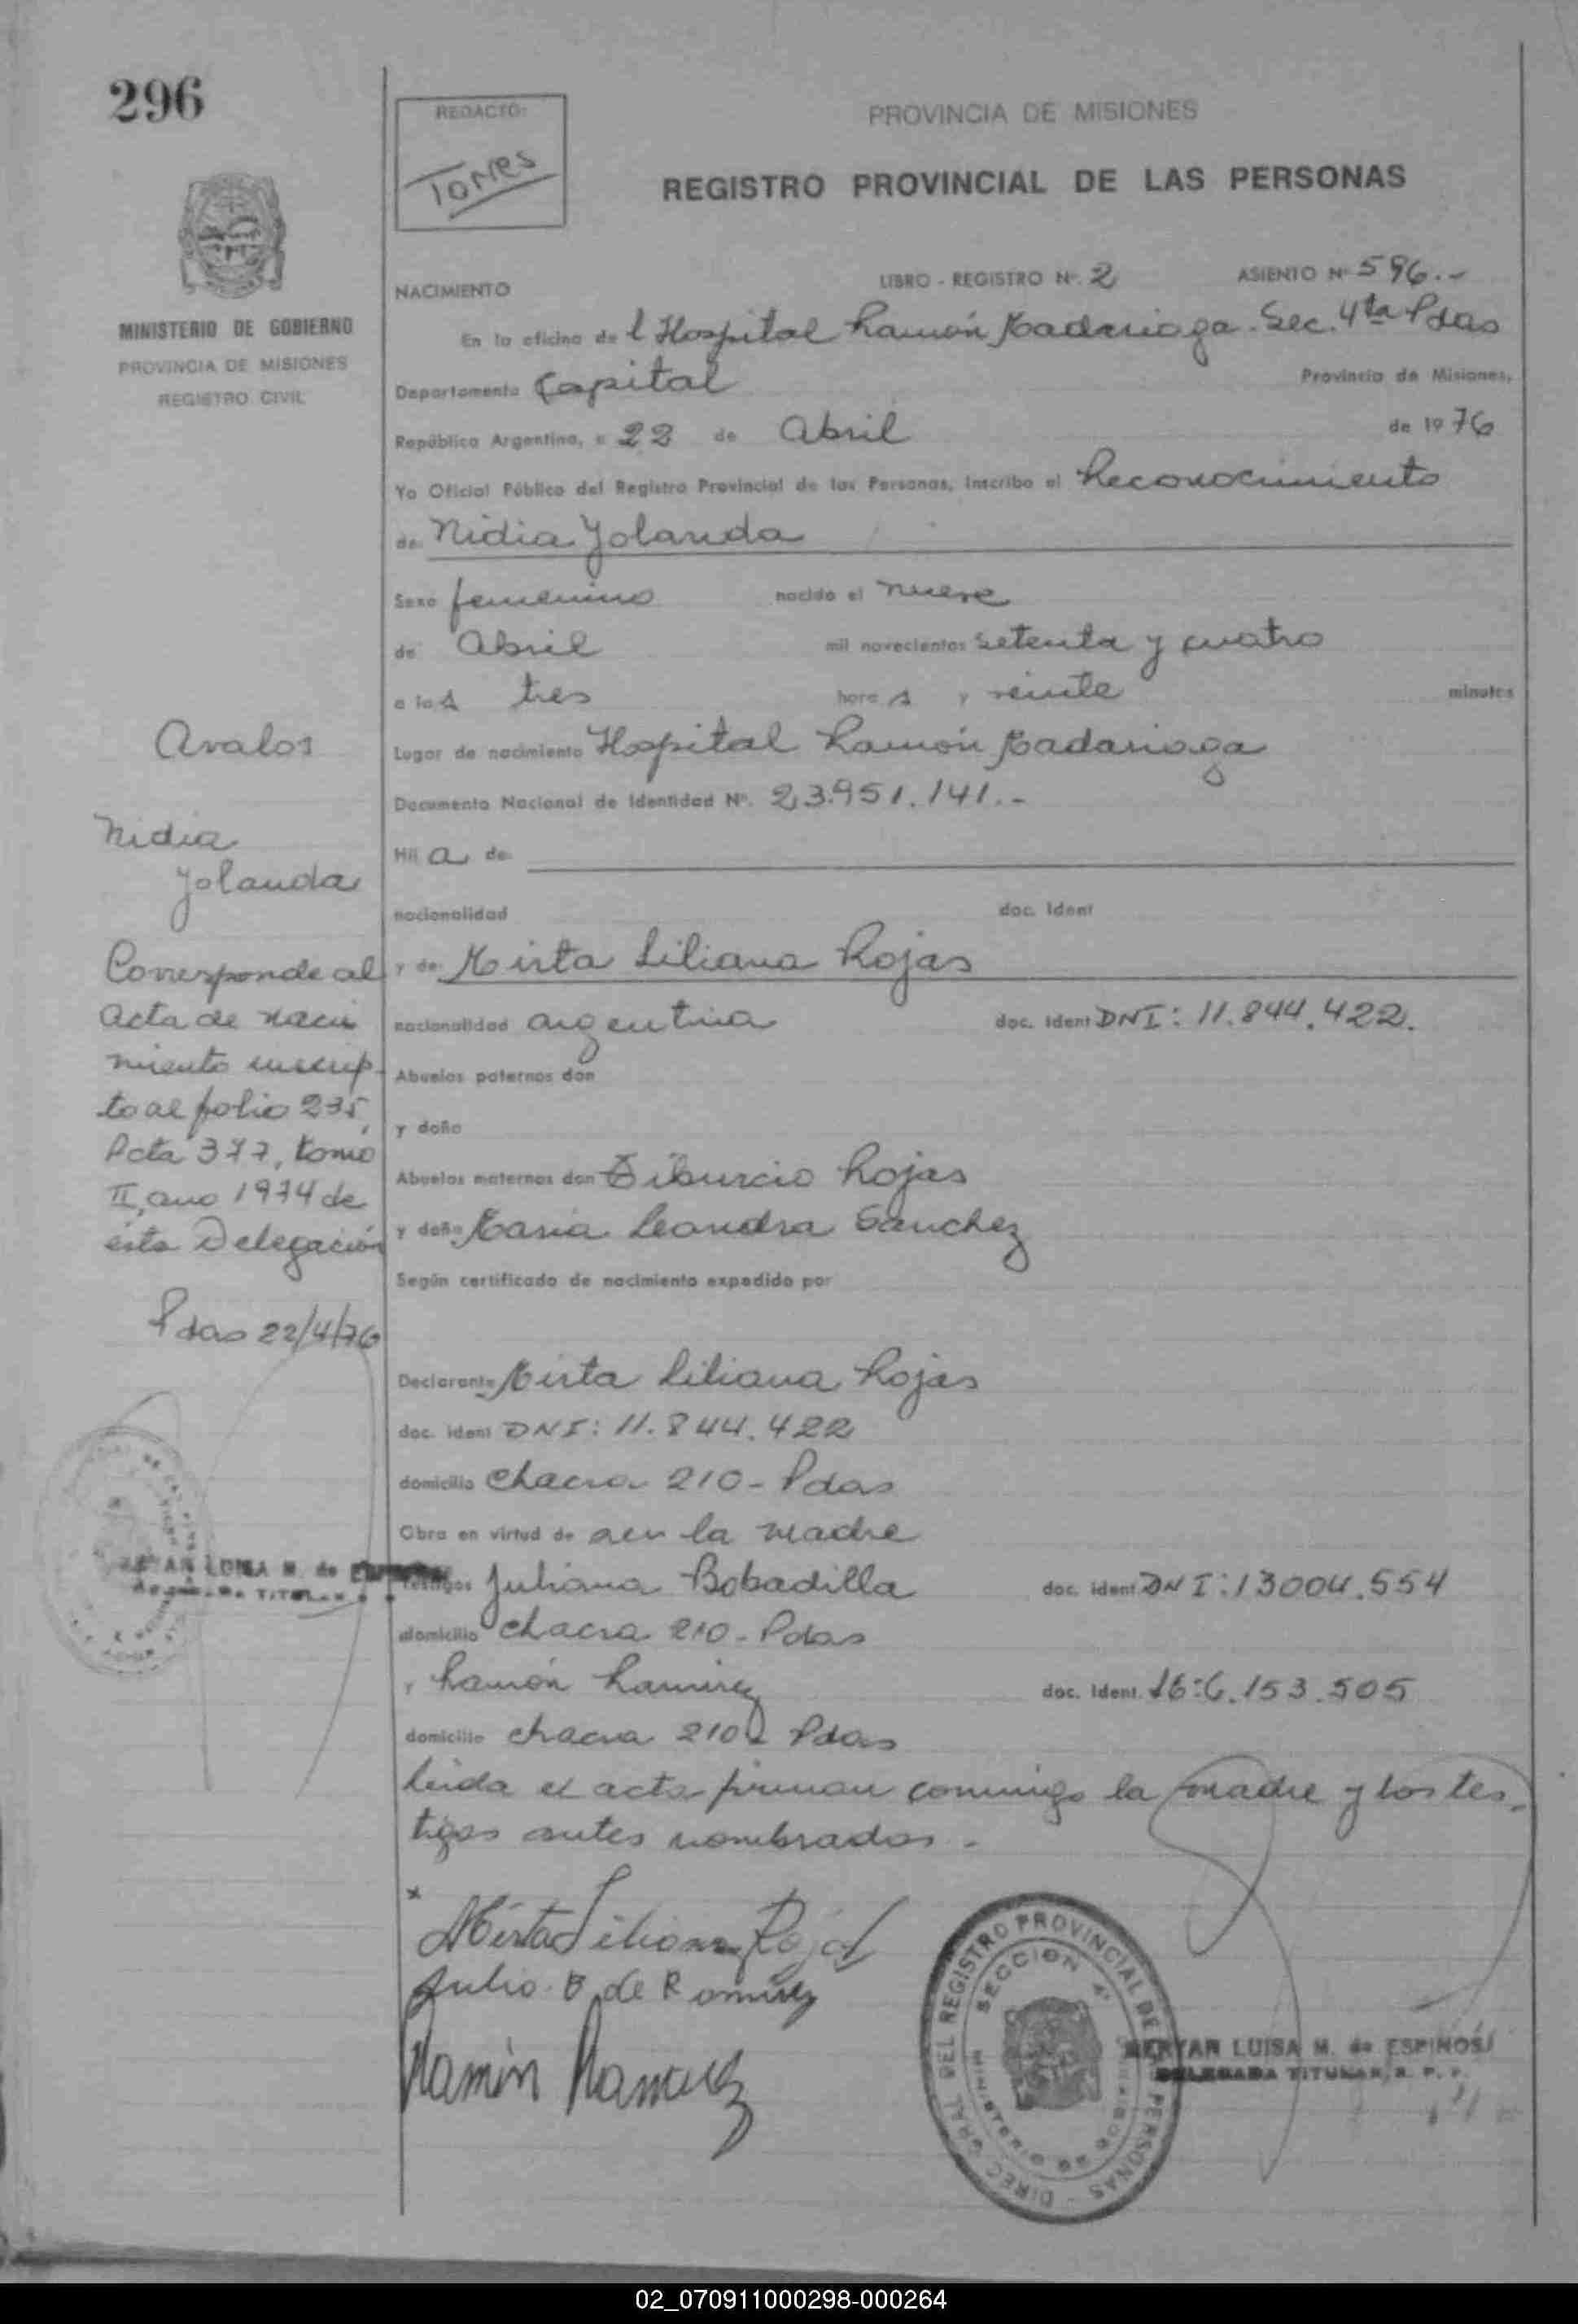 296
REDACTO:
Torres
PROVINCIA DE MISIONES
REGISTRO PROVINCIAL DE LAS PERSONAS
MINISTERIO DE GOBIERNO
PROVINCIA DE MISIONES
REGISTRO CIVIL
NACIMIENTO LIBRO - REGISTRO Nº. 2 ASIENTO Nº 596.-
En la oficina del Hospital Ramón Madariaga. Sec. 4ta Pdas
Departamento Capital Provincia de Misiones,
República Argentina, a 22 de Abril de 1976
Yo Oficial Público del Registro Provincial de las Personas, inscribo el Reconocimiento
de Nidia Yolanda
Sexo femenino nacido el nueve
de Abril mil novecientos setenta y cuatro
a las tres horas y veinte minutos
Lugar de nacimiento Hospital Ramón Madariaga
Documento Nacional de Identidad Nº. 23.951.141.-
Hija de
nacionalidad doc. Ident
y de Mirta Liliana Rojas
nacionalidad argentina doc. Ident DNI: 11.844.422.
Abuelos paternos don
y doña
Abuelos maternos don Tiburcio Rojas
y doña Maria Leandra Sanchez
Según certificado de nacimiento expedido por
Declarante Mirta Liliana Rojas
doc. Ident DNI: 11.844.422
domicilio Chacra 210 - Pdas
Obra en virtud de ser la madre
Testigos Juliana Bobadilla doc. Ident. DNI: 13004.554
domicilio chacra 210 - Pdas
y Ramón Ramirez doc. Ident. 6.153.505
domicilio chacra 210 - Pdas
leida el acta firman conmigo la madre y los tes-
tigos antes nombrados -
Avalos
Nidia
Yolanda
Corresponde al
acta de naci
miento inscrip-
to al folio 235,
Acta 377, tomo
II, ano 1974 de
ésta Delegación
Pdas 22/4/76
LUISA M. de
TITULAR
x
Mirta Liliana Rojas
Julia B de Ramirez
Ramón Ramirez
DIREC. GRAL DEL REGISTRO PROVINCIAL DE PERSONAS
SECCION 4ª
MERYAN LUISA M. de ESPINOSA
DELEGADA TITULAR, R. P. P.
02_070911000298-000264